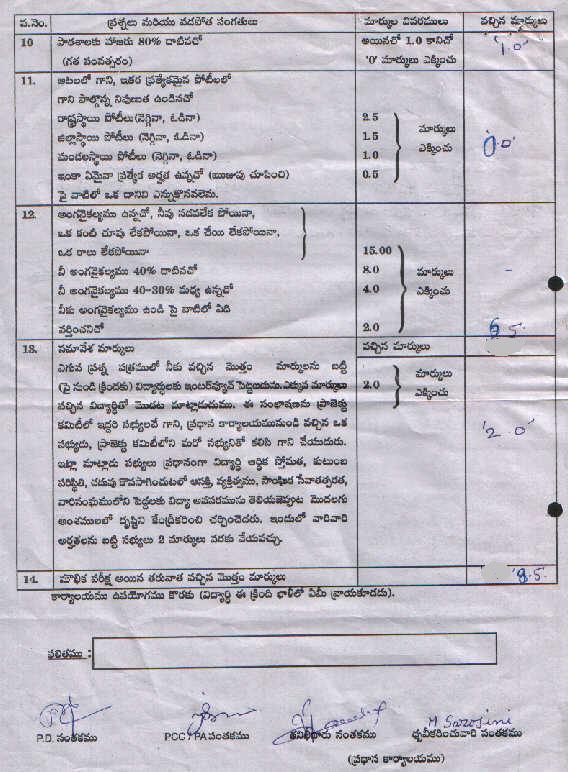 ప.నెం. ప్రశ్నలు మరియు వడపోత సంగతులు మార్కుల వివరములు వచ్చిన మార్కులు
10 పాఠశాలకు హాజరు 80% దాటినచో అయినచో 1.0 కానిచో 1.0
(గత సంవత్సరం) '0' మార్కులు ఎక్కించు
11. ఆటలలో గాని, ఇతర ప్రత్యేకమైన పోటీలలో
గాని పాల్గొన్న నిపుణత ఉండినచో
రాష్ట్రస్థాయి పోటీలు(నెగ్గినా, ఓడినా) 2.5 మార్కులు
జిల్లాస్థాయి పోటీలు (నెగ్గినా, ఓడినా) 1.5 ఎక్కించు 0.0
మండలస్థాయి పోటీలు (నెగ్గినా, ఓడినా) 1.0
ఇంకా ఏమైనా ప్రత్యేక అర్హత ఉన్నచో (ఋజువు చూపించి) 0.5
పై వాటిలో ఒక దానిని ఎన్నుకొనవలెను.
12. అంగవైకల్యము ఉన్నచో, నీవు నడవలేక పోయినా,
ఒక కంటి చూపు లేకపోయినా, ఒక చేయి లేకపోయినా,
ఒక కాలు లేకపోయినా 15.00
నీ అంగవైకల్యము 40% దాటినచో 8.0 మార్కులు -
నీ అంగవైకల్యము 40-30% మధ్య ఉన్నచో 4.0 ఎక్కించు
నీకు అంగవైకల్యము ఉండి పై వాటిలో ఏది
వర్తించనిచో 2.0 6.5
13. సమావేశ మార్కులు వచ్చిన మార్కులు
ఎగువ ప్రశ్న పత్రములో నీకు వచ్చిన మొత్తం మార్కులను బట్టి మార్కులు
(పై నుండి క్రిందకు) విద్యార్థులకు ఇంటర్వ్యూకి పెట్టబడును. ఎక్కువ మార్కులు 2.0 ఎక్కించు
వచ్చిన విద్యార్థితో మొదట మాట్లాడుదుము. ఈ సంభాషణను ప్రాజెక్టు
కమిటీలో ఇద్దరు సభ్యులచే గాని, ప్రధాన కార్యాలయమునుండి వచ్చిన ఒక 2.0
సభ్యుడు, ప్రాజెక్టు కమిటీలోని మరో సభ్యునితో కలిసి గాని చేయుదురు.
ఇట్లా మాట్లాడు సభ్యులు ప్రధానంగా విద్యార్థి ఆర్థిక స్తోమత, కుటుంబ
పరిస్థితి, చదువు కొనసాగించుటలో ఆసక్తి, వ్యక్తిత్వము, సాంఘిక సేవాతత్పరత,
వారిసంఘములోని పెద్దలకు విద్యా అవసరమును తెలియజెప్పుట మొదలగు
అంశములలో దృష్టిని కేంద్రీకరించి చర్చించెదరు. ఇందులో వారివారి
అర్హతలను బట్టి సభ్యులు 2 మార్కులు వరకు వేయవచ్చు.
14. మౌలిక పరీక్ష అయిన తరువాత వచ్చిన మొత్తం మార్కులు 8.5
కార్యాలయము ఉపయోగము కొరకు (విద్యార్థి ఈ క్రింది ఖాళీలో ఏమీ వ్రాయకూడదు).
ఫలితము :
M Sarojini
P.D. సంతకము PCC / PA సంతకము తనిఖీదారు సంతకము ధృవీకరించువారి సంతకము
(ప్రధాన కార్యాలయము)